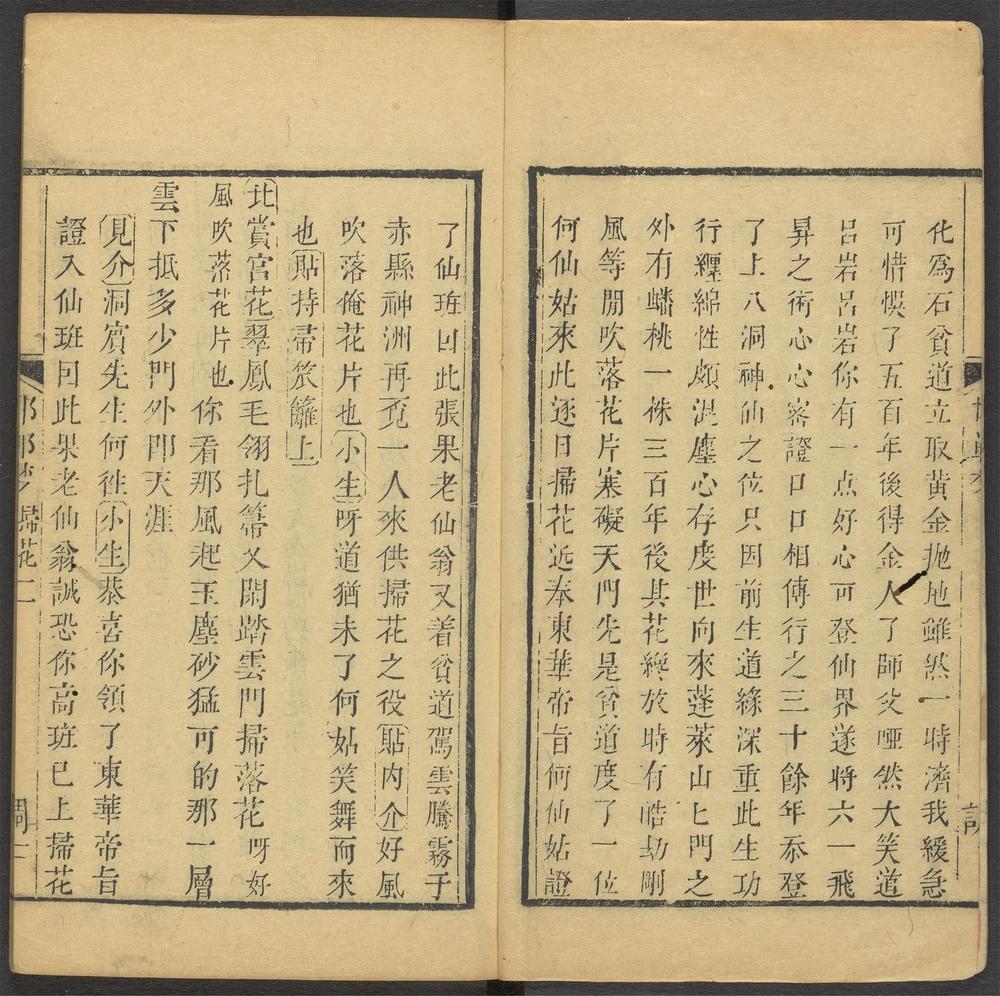 化爲石貧道立取黄金抛地雖然一時濟我緩急
可惜悞了五百年後得金人了師父啞然大笑道
吕岩吕岩你有一点好心可登仙界遂將六一飛
昇之術心心宻證口口相傳行之三十餘年忝登
了上八洞神仙之位只因前生道緣深重此生功
行纒綿性頗混塵心存度世向來蓬萊山上門之
外有蟠桃一株三百年後其花纔放時有晧劫剛
風等閒吹落花片塞礙天門先是貧道度了一位
何仙姑來此逐日掃花近奉東華帝旨何仙姑證
了仙班囙此張果老仙翁又着貧道駕雲騰霧于
赤縣神洲再覓一人來供掃花之役貼内介好風
吹落俺花片也小生呀道猶未了何姑笑舞而來
也貼持帚
北賞宫花翠鳳毛翎扎箒乂閑踏雲門掃落花呀好
風吹落花片也你看那風起玉塵砂猛可的那一層
雲下抵多少門外即天涯
見介洞賓先生何徃小生恭喜你領了東華帝旨
證入仙班囙此果老仙翁誠恐你高班已上掃花
掃花二